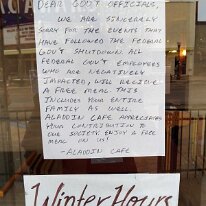 DEAR GOV'T OFFICIALS,
WE ARE SINCERELY
SORRY FOR THE EVENTS THAT
HAVE FOLLOWED THE FEDERAL
GOV'T SHUTDOWN. ALL
FEDERAL GOV'T EMPLOYEES
WHO ARE NEGATIVELY
IMPACTED, WILL RECIEVE
A FREE MEAL. THIS
INCLUDES YOUR ENTIRE
FAMILY AS WELL.
ALADDIN CAFE APPRECIATES
YOUR CONTRIBUTION TO
OUR SOCIETY. ENJOY A FREE
MEAL ON US!
-ALADDIN CAFE
Winter Hours